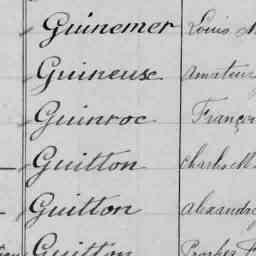 Guinemer Louis
Guineuse Amateur
Guinroc François
Guitton Charles M
Guitton Alexandre
Guitton Prosper